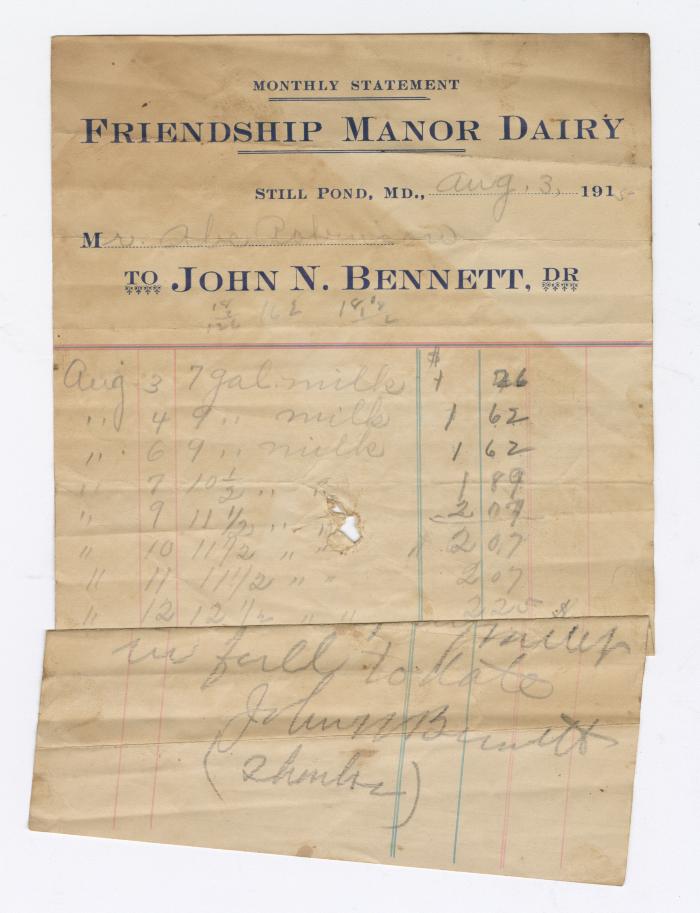 MONTHLY STATEMENT
FRIENDSHIP MANOR DAIRY
STILL POND, MD., Aug. 3, 1915
Mr. Abe
TO JOHN N. BENNETT, DR
18 162 18
Aug 3 7 gal. milk $1 26
" 4 9 " milk 1 62
" 6 9 " milk 1 62
" 7 10 1/2 " " 1 89
" 9 11 1/2 " " 2 07
" 10 11 1/2 " " " 2 07
" 11 11 1/2 " " 2 07
" 12 12 1/2 " " 2 25
in full to date
John N Bennett
(Thanks)